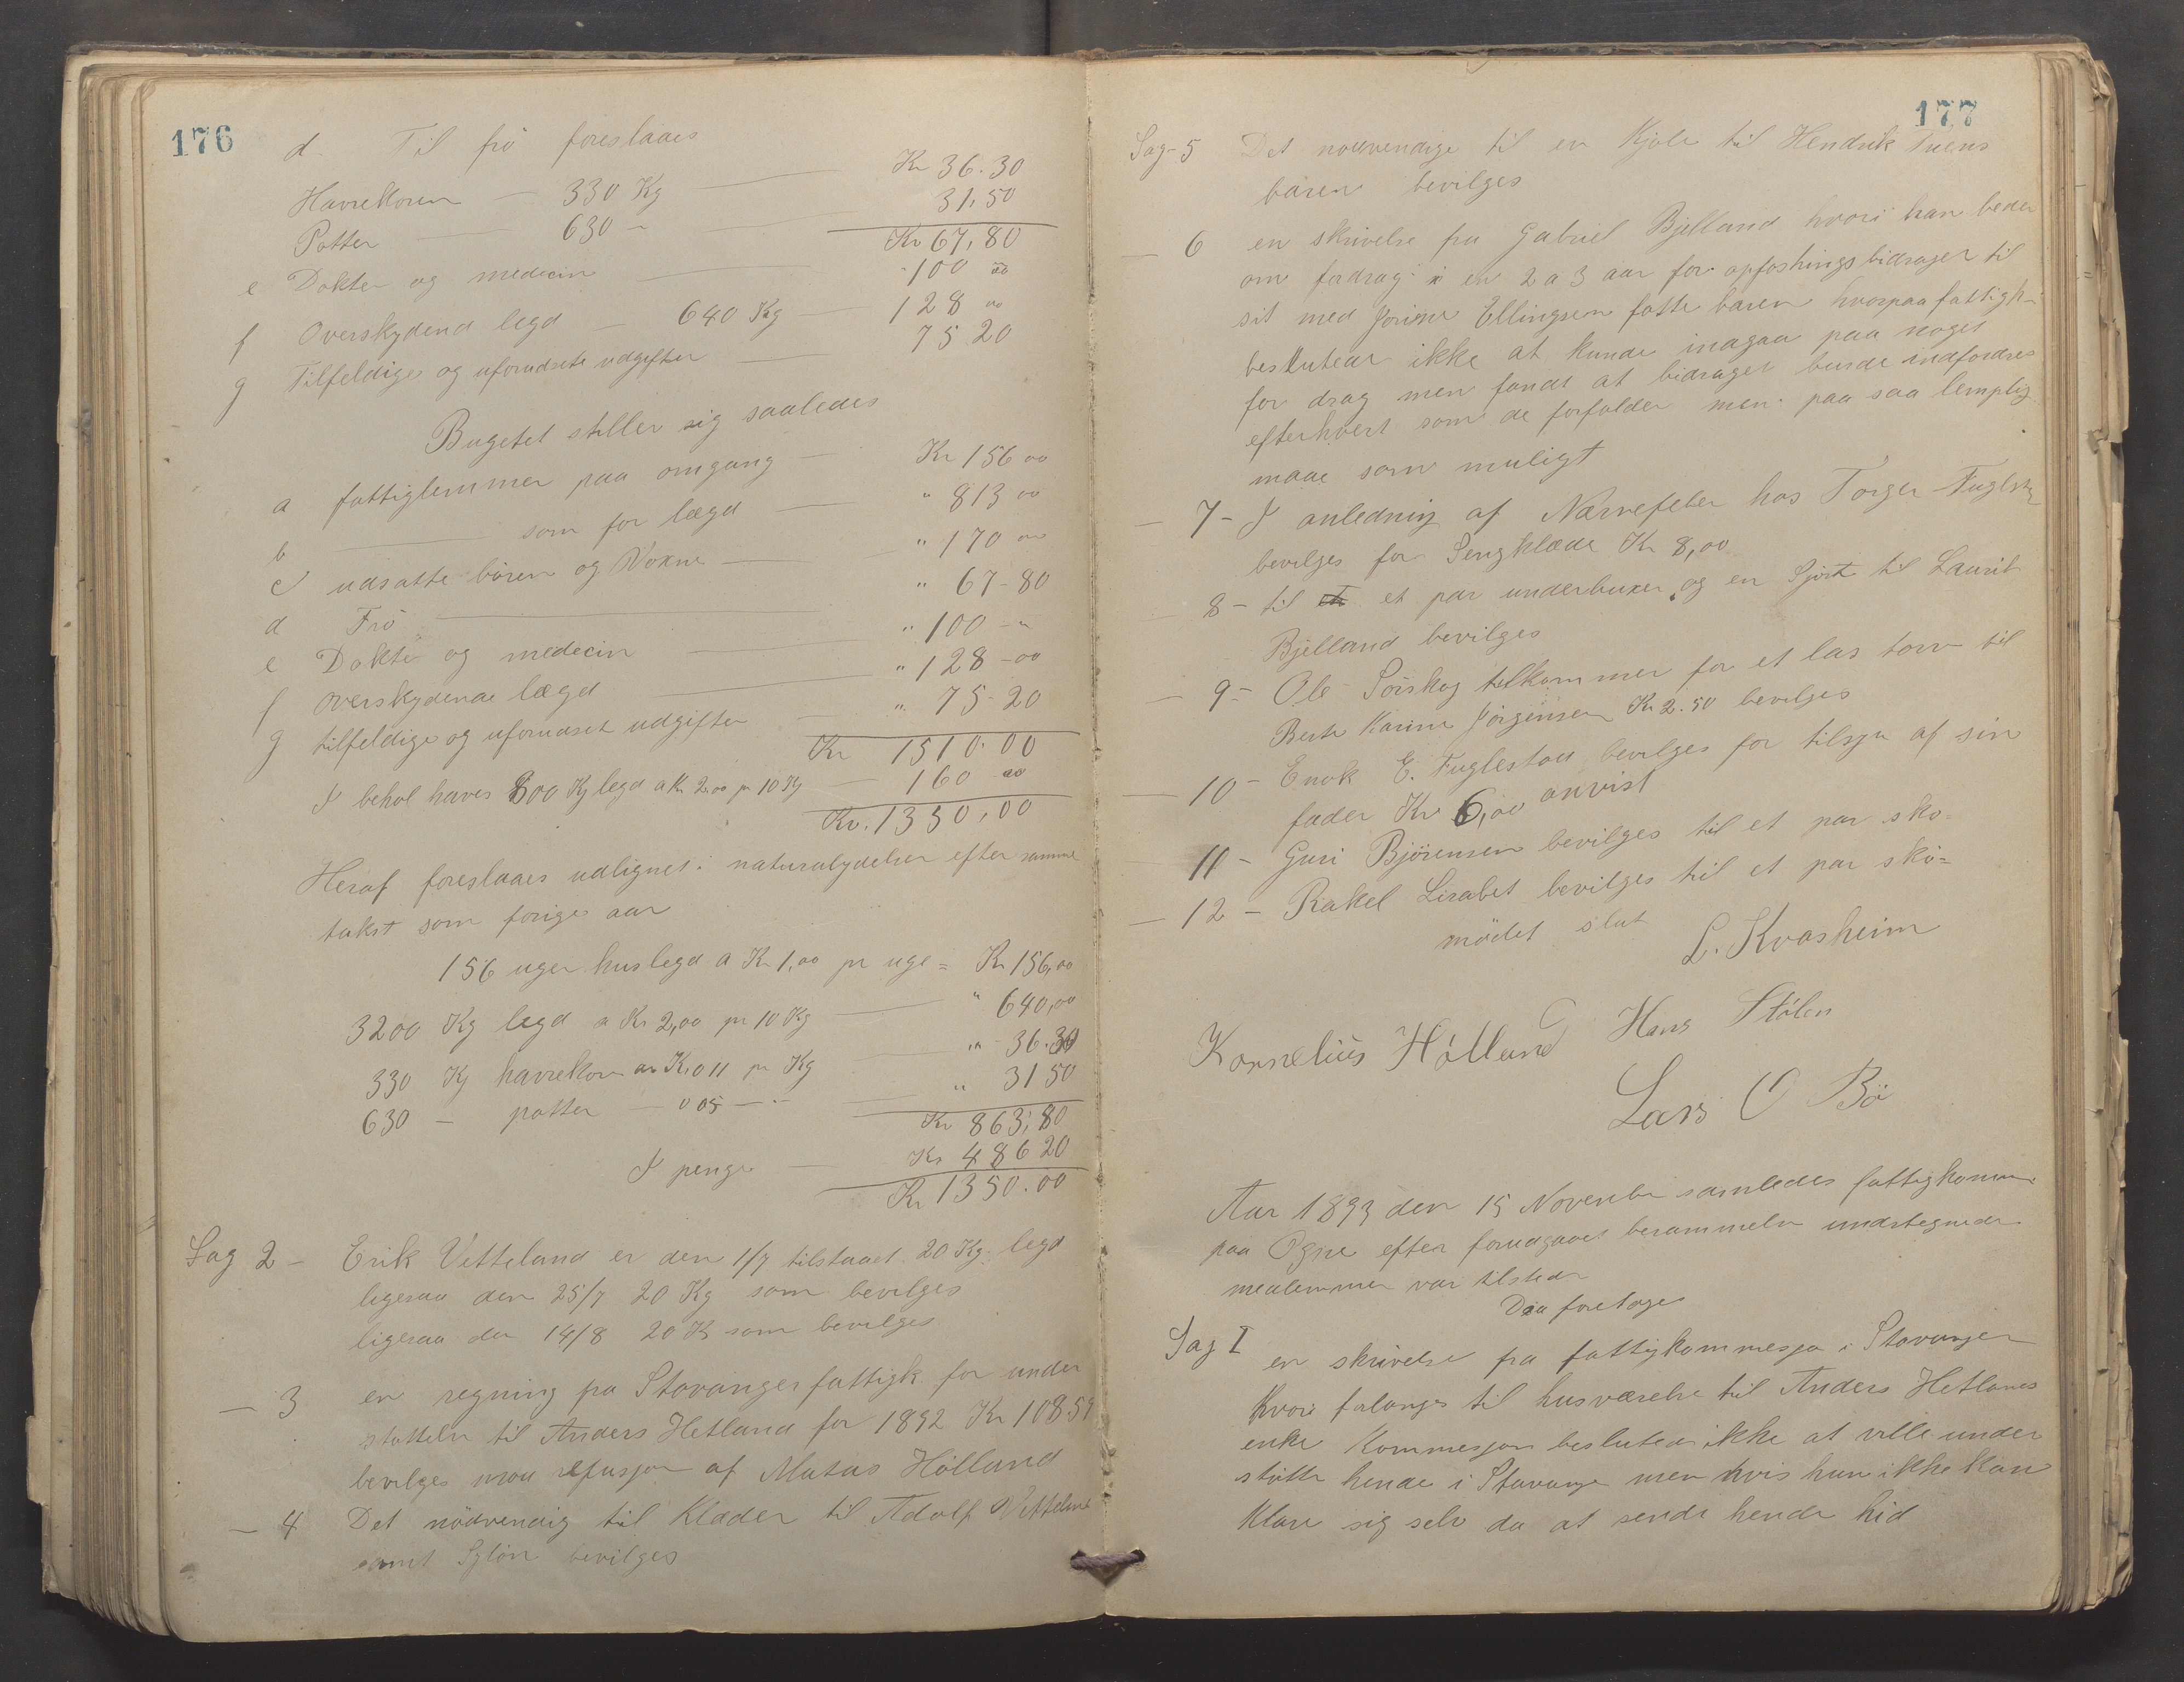 176
d Til frö foreslaaes
Havrekoren — 330 Kg — Kr 36.30
Potter — 630 - — 31,50
Kr 67,80
e Dokter og medecin — 100 00
f Overskydend legd — 640 Kg — 128 00
g Tilfeldige og uforudsete udgifter — 75 20
Bugetet stiller sig saaledes
a fattiglemmer paa omgang — Kr 156 00
b — som for lægd — " 813 00
c udsatte bören og Voxne — " 170 00
d Frö — " 67-80
e Dokter og medecin — " 100 - "
f overskydende lægd — " 128-00
g tilfeldige og uforudset udgifter — " 75-20
Kr 1510.00
I behol haves 800 Kg legd a Kr 2.00 pr 10 Kg — 160 00
Kr. 1350,00
Heraf foreslaaes udlignet i naturalydelser efter samme
takst som forige aar
156 uger huslegd a Kr 1,00 pr uge = Kr 156,00
3200 Kg legd a Kr 2,00 pr 10 Kg — " 640,00
330 Kg havrekorn a Kr 0 11 pr Kg — " 36.30
630 — potter — 0 05 — " — " 31 50
Kr 863,80
I penge — Kr 486 20
Kr 1350.00
Sag 2 - Erik Vetteland er den 1/7 tilstaaet 20 Kg legd
ligesaa den 25/7 20 Kg som bevilges
ligesaa den 14/8 20 K som bevilges
— 3 en regning fra Stavanger fattigk. for under
støttelse til Anders Hetland for 1892 Kr 108.59
bevilges mod refusjon af Matias Hølland
— 4 Det nödvendig til Klæder til Adolf Vetteland
samt bevilges
177
Sag-5 Det nödvendige til en Kjole til Hendrik Tuens
baren bevilges
— 6 en skrivelse fra Gabriel Bjelland hvori han beder
om fordrag i en 2 a 3 aar for opfostringsbidraget til
sit med Jorine Ellingsen fatte baren hvorpaa fattigk-
besluteде ikke at kunde inagaa paa noget
for drag men fandt at bidraget burde indfordres
efterhvert som de forfalder men paa saa lemplig
maae som muligt
— 7 - I anledning af Nervefeber hos Torger Fuglestad
bevilges for Sengklæde Kr 8,00
8 - til et par underbuxer og en Sjört til Laurits
Bjelland bevilges
— 9 - Ole Sörskog tilkommer for et las torv til
Berte Karine Jörgensen Kr 2.50 bevilges
— 10 - Enok E. Fuglestad bevilges for tilsyn af sin
fader Kr 6,00 anvist
— 11 - Guri Björensen bevilges til et par sko-
— 12 - Rakel Lisabet bevilges til et par sko-
mödet slut
L. Kvasheim
Kornelius Hölland Hans Stölen
Lars O Bö
Aar 1893 den 15 November samledes fattigkomm
paa Ogne efter forudgaaet berammelse undertegnede
medlemmer var tilstede
Daa foretoges
Sag I en skrivelse fra fattigkommesjon i Stavanger
hvori forlanges til husværelse til Anders Hetlands
enke Kommesjon besluted ikke at ville under
stötte hende i Stavanger men hvis hun ikke kan
Klare sig selv da at sende hende hid